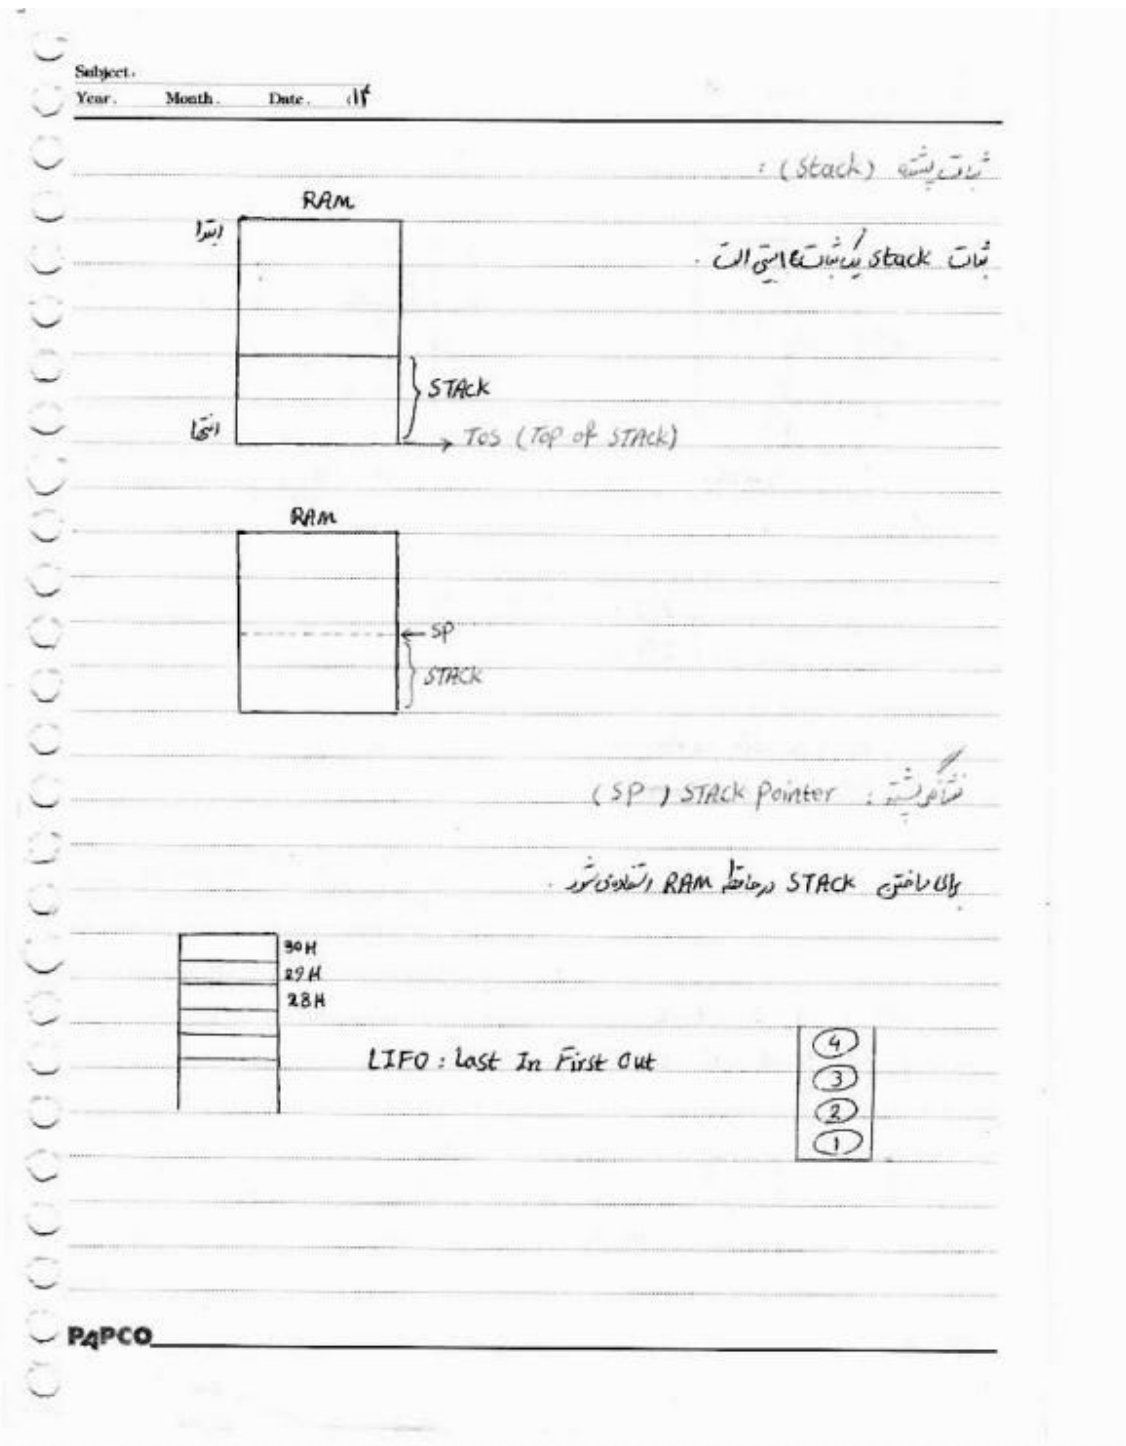 Subject.
Year. Month. Date. ۱۴
ثبات پشته (Stack) :
RAM
ابتدا
ثبات Stack یک ثبات ۱۶ بیتی است .
STACK
انتها
TOS (TOP of STACK)
RAM
SP
STACK
نشانگر پشته : STACK Pointer (SP)
برای ساختن STACK در حافظه RAM استفاده می شود .
30H
29H
28H
LIFO : Last In First Out
4
3
2
1
PAPCO